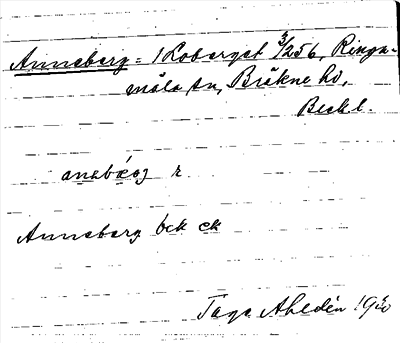 Anneberg = 1 Loberget 3/256, Ringa-
måla sn, Bräkne hd,
Blek l.
anəbærj r
Anneberg bck ek
Tage Ahldén 1940